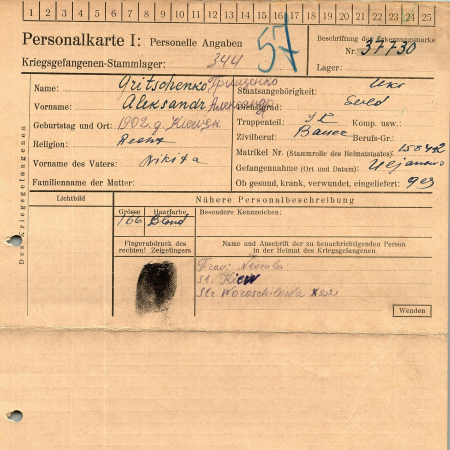 1 2 3 4 5 6 7 8 9 10 11 12 13 14 15 16 17 18 19 20 21 22 23 24 25
Personalkarte I: Personelle Angaben
Kriegsgefangenen-Stammlager: 344
57
Beschriftung der Erkennungsmarke
Nr. 37730
Lager:
Des Kriegsgefangenen
Name: Gritschenko Грищенко
Vorname: Aleksandr Александр
Geburtstag und Ort: 1902. g.
Religion:
Vorname des Vaters: Nikita
Familienname der Mutter:
Staatsangehörigkeit: Ukr
Dienstgrad: Sold
Truppenteil: Komp. usw.:
Zivilberuf: Bauer Berufs-Gr.:
Matrikel Nr. (Stammrolle des Heimatstaates):
Gefangennahme (Ort und Datum): Uljanowo
Ob gesund, krank, verwundet, eingeliefert: ges
Lichtbild
Nähere Personalbeschreibung
Grösse Haarfarbe Besondere Kennzeichen:
166 Blond
Fingerabdruck des rechten! Zeigefingers
Name und Anschrift der zu benachrichtigenden Person
in der Heimat des Kriegsgefangenen
Frau:
st. Kiew
Str. Woroschilowa
Wenden